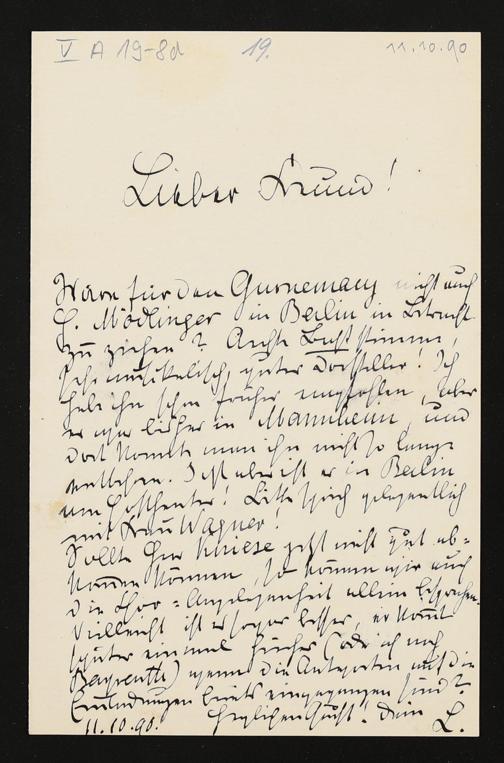 V A 19-8d 19. 11.10.90
Lieber Freund!
Wäre für den Gurnemanz nicht auch
H. Mödlinger in Berlin in Betracht
zu ziehen? Ächte Baßstimme,
sehr musikalisch, guter Darsteller! Ich
habe ihn schon früher empfohlen, aber
er war bisher in Mannheim, und
dort konnte man ihn nicht so lange
entbehren. Jetzt aber ist er in Berlin
am Hoftheater! Bitte sprich gelegentlich
mit Frau Wagner!
Sollte Herr Kniese jetzt nicht gut ab-
kommen können, so können wir auch
die Chor-Angelegenheit allein besprechen.
Vielleicht ist es sogar besser, er kommt
später einmal hierher (oder ich nach
Bayreuth) wenn die Antworten auf die
Einladungen bereits eingegangen sind?
11.10.90. Herzlichen Gruß! Dein L.